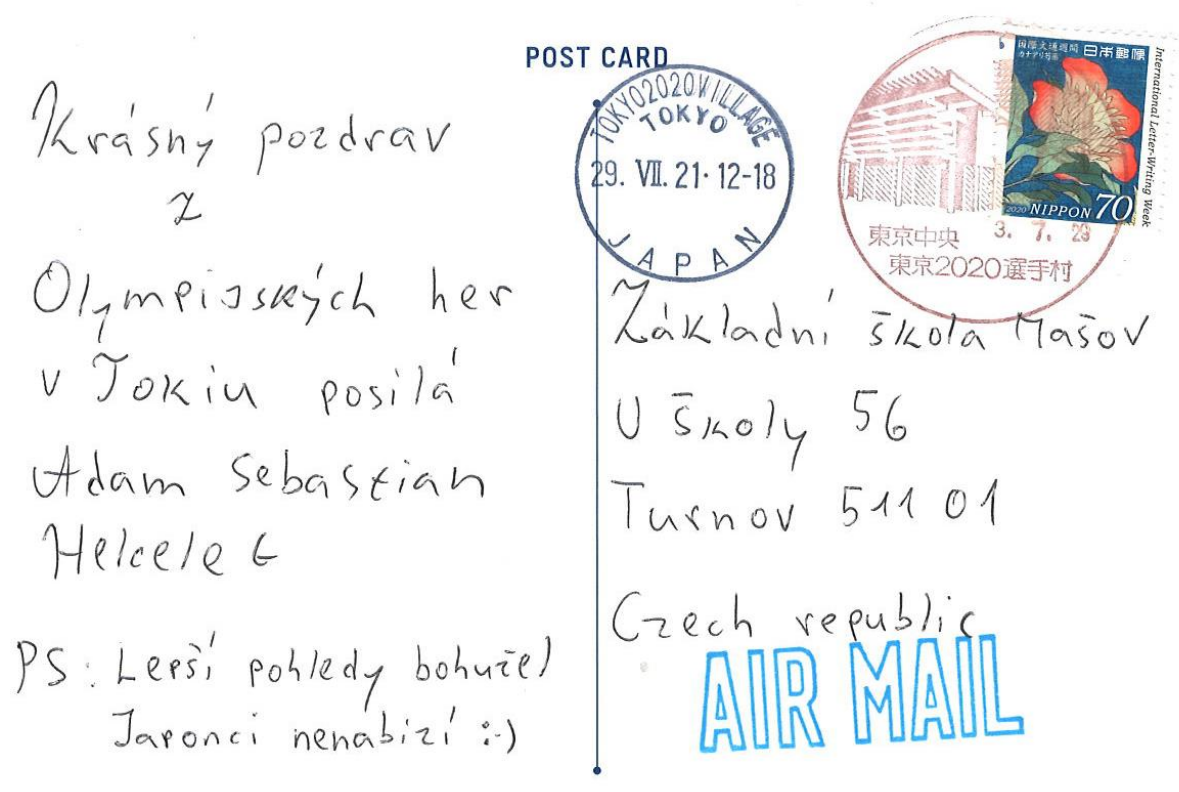 POST CARD
Krásný pozdrav
z
Olympijských her
v Tokiu posílá
Adam Sebastian
Helcelet
PS: Lepší pohledy bohužel
Japonci nenabízí :-)
TOKYO2020VILLAGE
TOKYO
29. VII. 21・12-18
JAPAN
国際文通週間
日本郵便
International Letter-Writing Week
2020 NIPPON 70
東京中央 3. 7. 29
東京2020選手村
Základní škola Mašov
U školy 56
Turnov 511 01
Czech republic
AIR MAIL